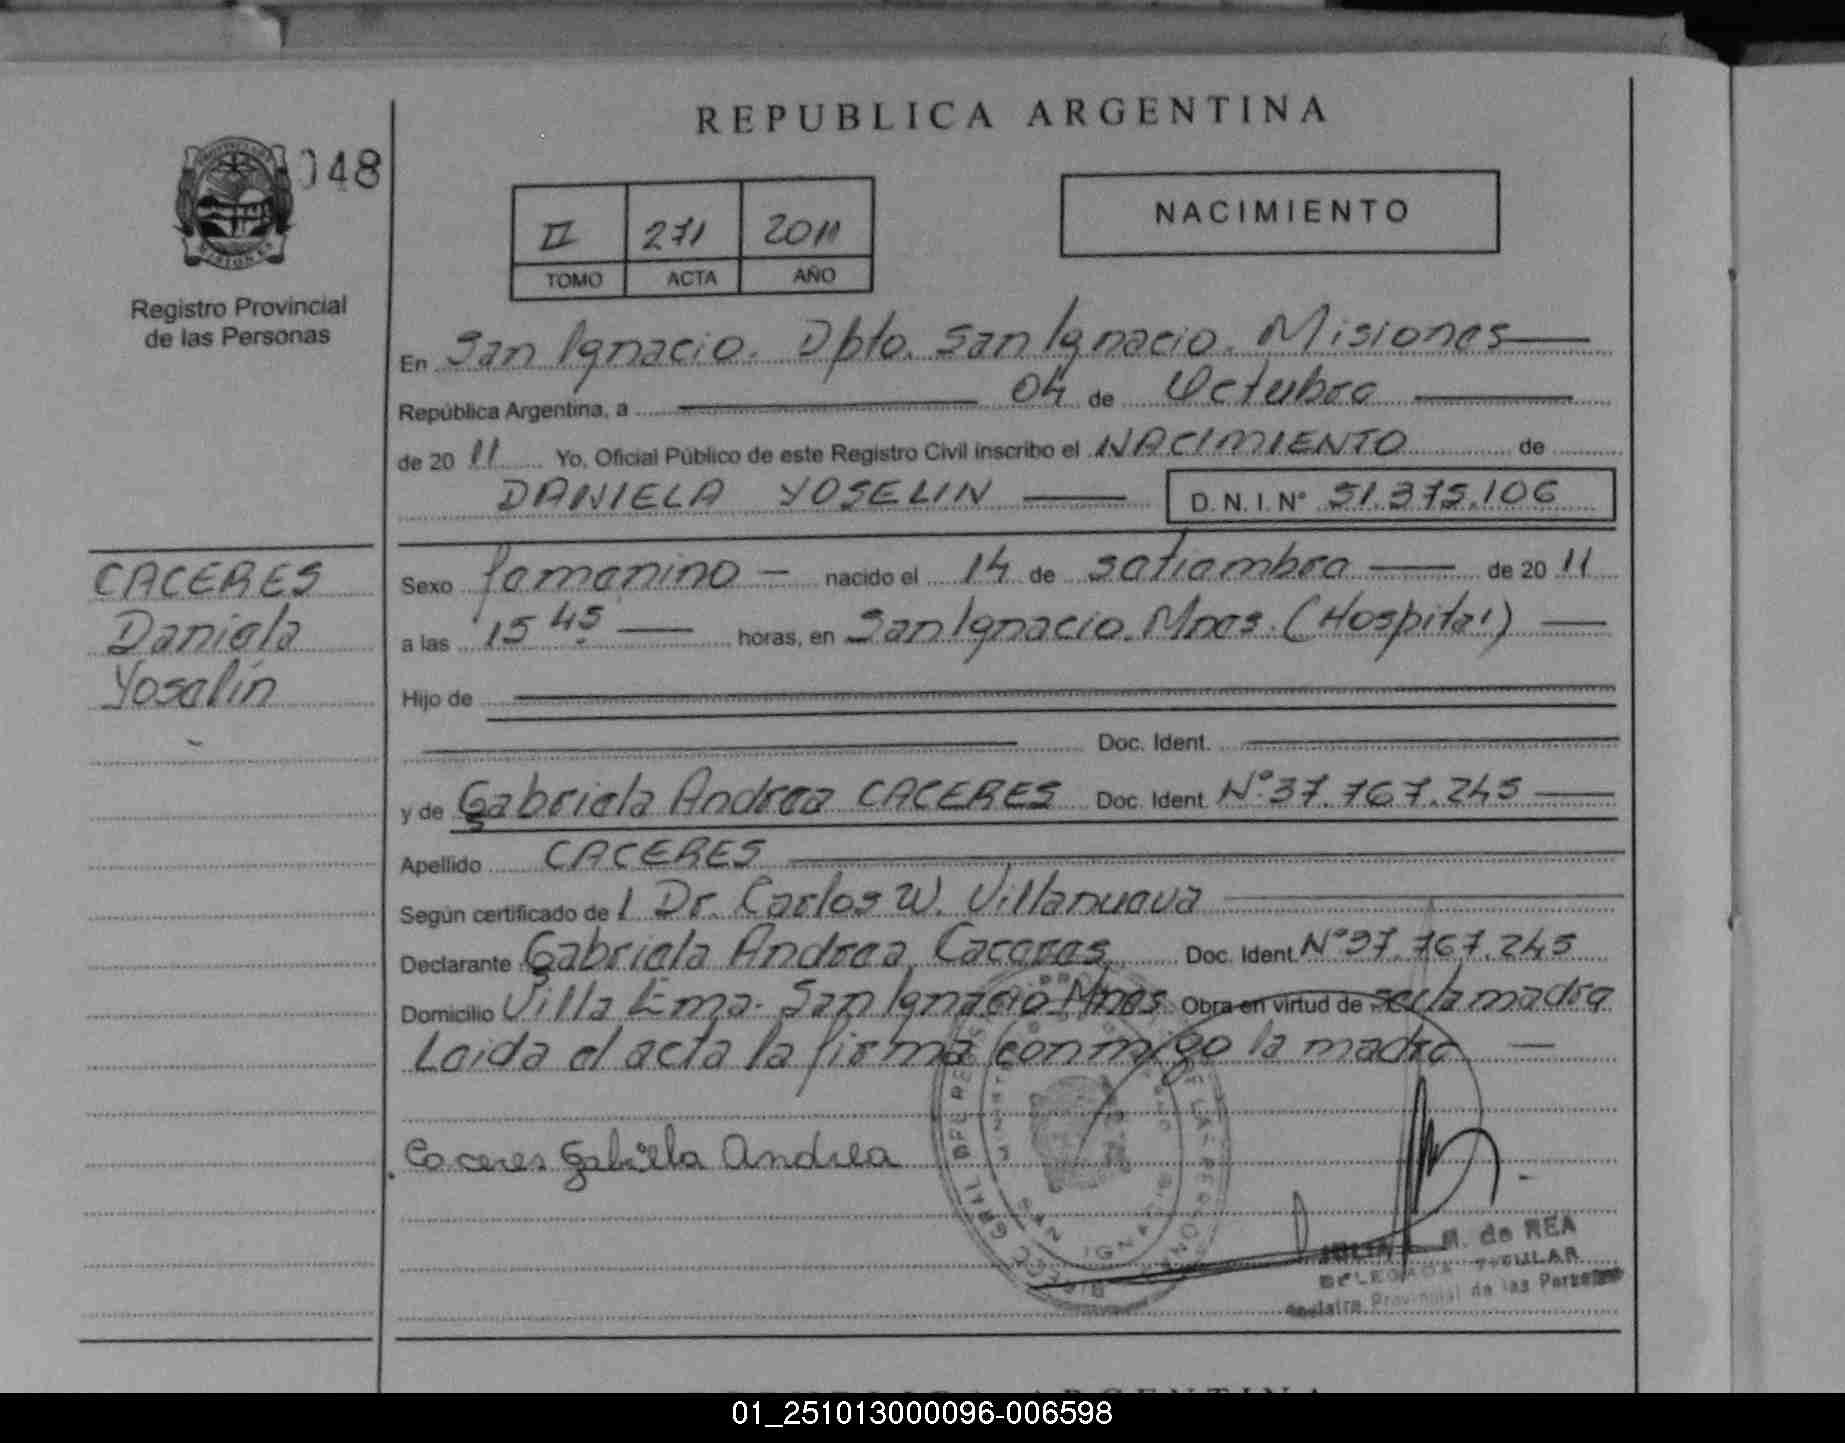 REPUBLICA ARGENTINA
048
NACIMIENTO
II 271 2011
TOMO ACTA AÑO
Registro Provincial
de las Personas
En San Ignacio. Dpto. San Ignacio. Misiones
República Argentina, a 04 de Octubre
de 2011 Yo, Oficial Público de este Registro Civil inscribo el NACIMIENTO de
DANIELA YOSELIN D.N.I.N° 51.375.106
CACERES
Daniela
Yoselin
Sexo femenino nacido el 14 de setiembre de 2011
a las 15 45 horas, en San Ignacio. Mnes. (Hospital)
Hijo de
Doc. Ident.
y de Gabriela Andrea CACERES Doc. Ident. N° 37.767.245
Apellido CACERES
Según certificado de l Dr. Carlos W. Villanueva
Declarante Gabriela Andrea Caceres Doc. Ident. N° 37.767.245
Domicilio Villa Ema. San Ignacio Mnes. Obra en virtud de ser la madre
Leida el acta la firma conmigo la madre
Caceres Gabriela Andrea
M. de REA
DELEGADA TITULAR
Registro Provincial de las Personas
REPUBLICA ARGENTINA
01_251013000096-006598